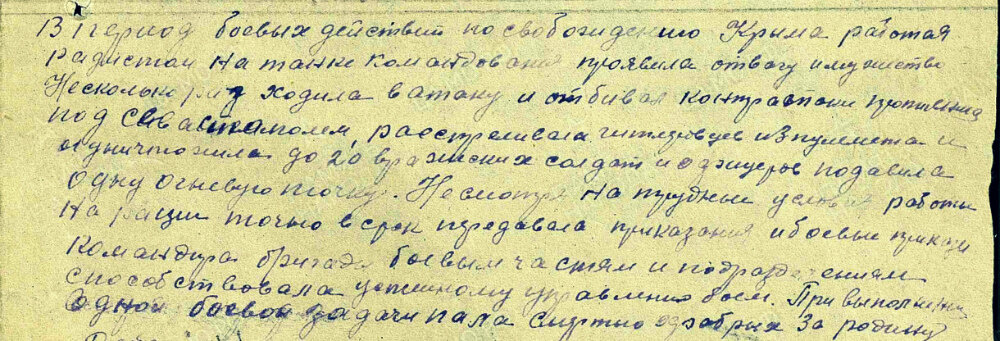 В период боевых действий по свобождению Крыма работая
радистом на танке командования проявила отвагу и мужество
Несколько раз ходила в атаку и отбивая контратаки противника
под Севастополем, расстреливала гитлеровцев из пулемета и
уничтожила до 20 вражеских солдат и офицеров подавила
одну огневую точку. Несмотря на трудные условия работы
на рации точно в срок передавала приказания и боевые приказы
командира бригады боевым частям и подразделениям
способствовала успешному управлению боем. При выполнении
одной боевой задачи пала смертью храбрых за родину